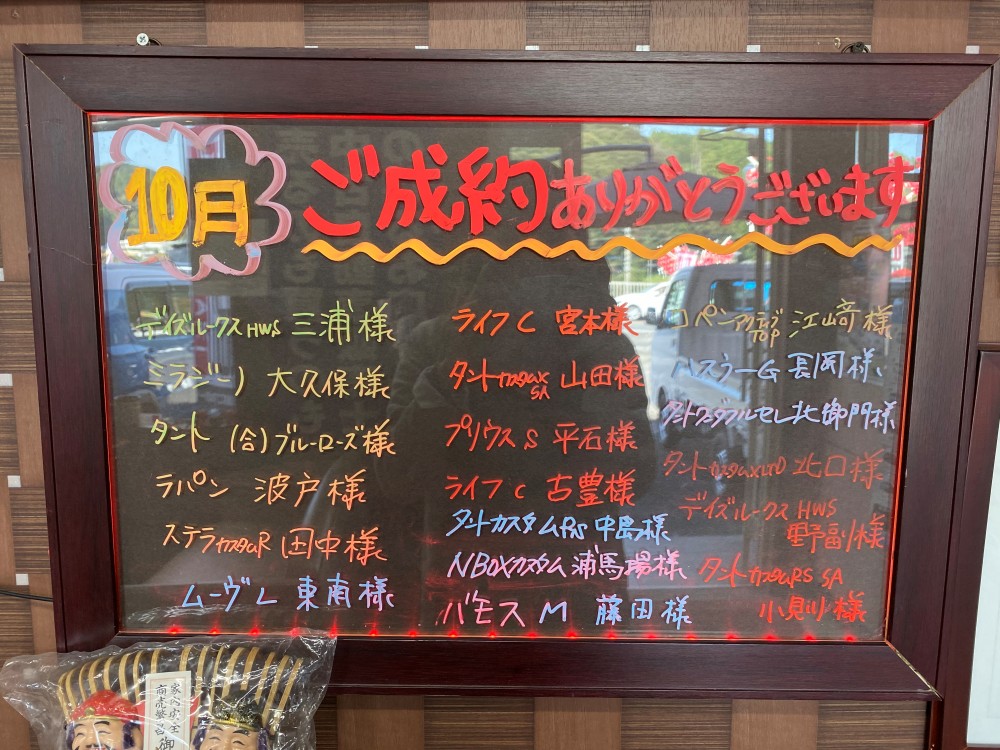 10月
ご成約ありがとうございます
デイズルークス HWS 三浦様
ミラジーノ 大久保様
タント (合)ブルーローズ様
ラパン 波戸様
ステラカスタムR 田中様
ムーヴL 東南様
ライフC 宮本様
タントカスタムX
SA 山田様
プリウスS 平石様
ライフC 古豊様
タントカスタムRS 中島様
NBOXカスタム 浦馬場様
バモスM 藤田様
コペンアクティブ
TOP 江﨑様
ハスラーG 長岡様
タントワンダフルセレ 北御門様
タントカスタムXLTD 北口様
デイズルークス HWS
野副様
タントカスタムRS SA
小見川様
家内安全
商売繁昌
御